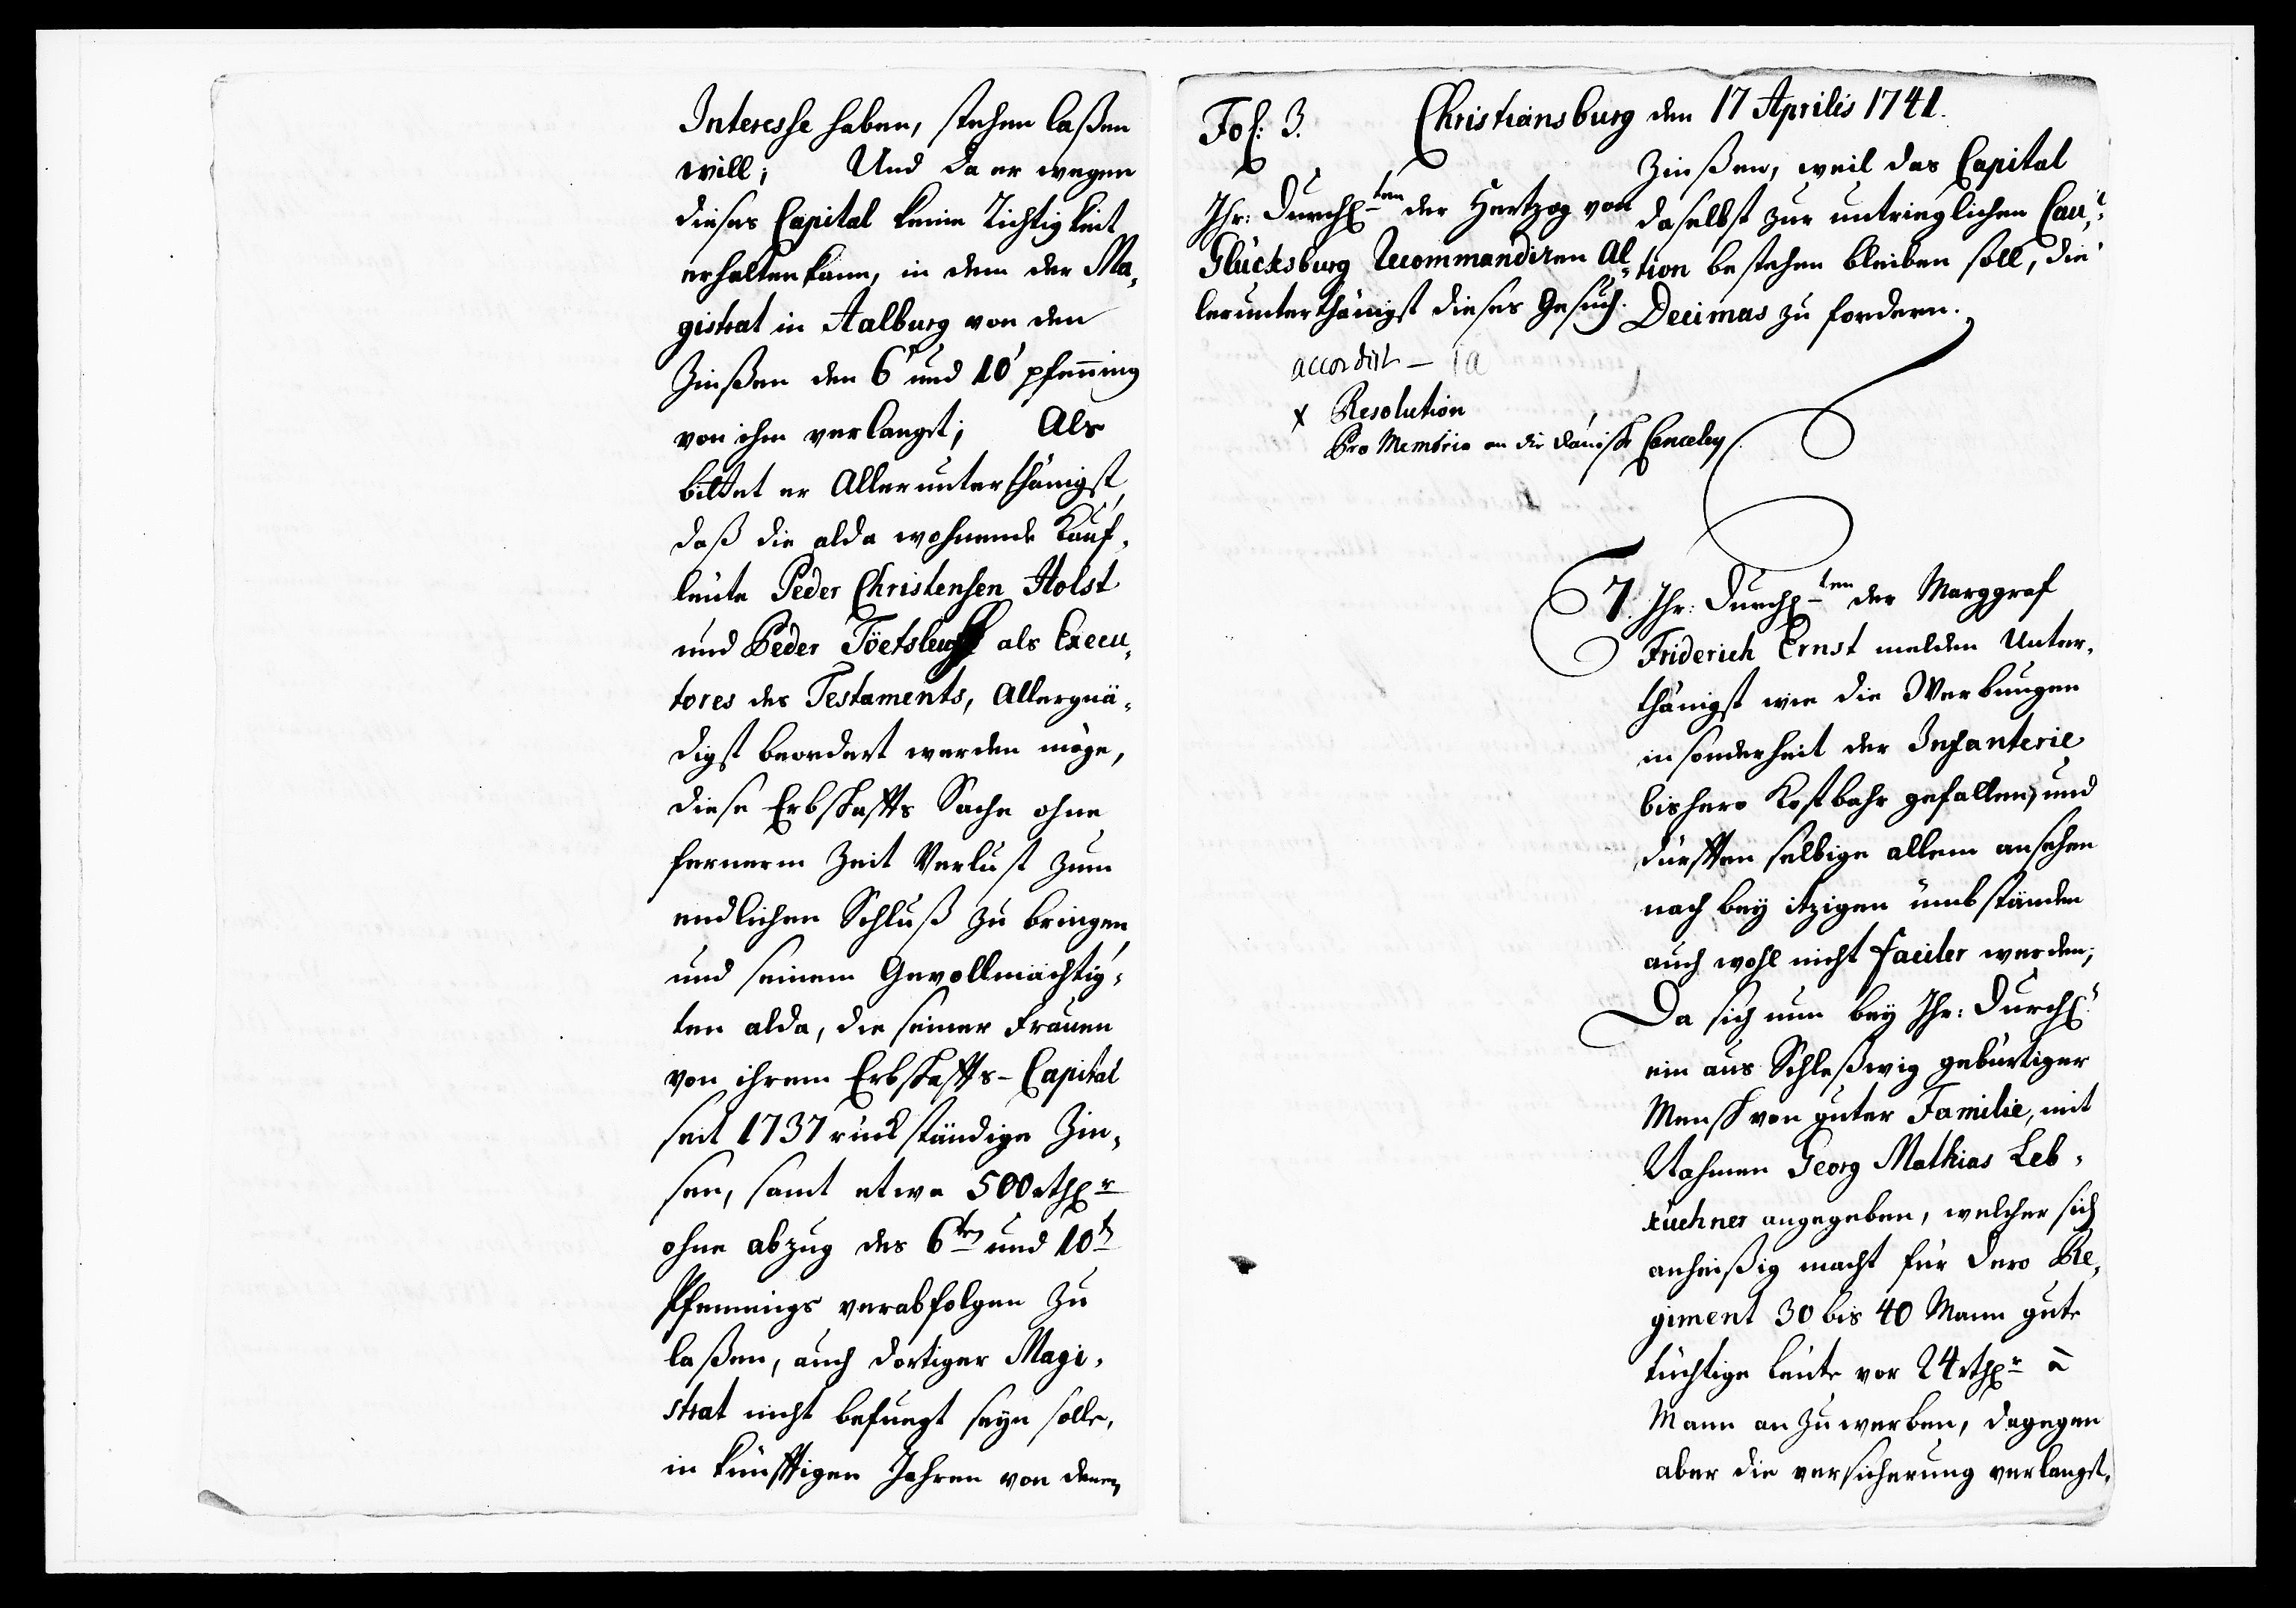 Interesse haben, stehen laßen
will; Und da er wegen
dieses Capital keine Richtigkeit
erhalten kann, in dem der Ma,
gistrat in Aalburg von den
Zinßen den 6' und 10' pfenning
von ihm verlangt; Als
bittet er Allerunterthänigst,
daß die alda wohnende Kauf,
leute Peder Christensen Holst
und Peder als Execu,
tores des Testaments, Allergnä,
digst beordert werden möge,
diese Erbschaffts Sache ohne
fernerm Zeit Verlust zum
endlichen Schluß zu bringen
und seinem Gevollmächtig,
ten alda, die seiner Frauen
von ihrem Erbschaffts-Capital
seit 1737 rückständige Zin,
sen, samt etwa 500 rthlr
ohne abzug des 6ten und 10ten
Pfennings verabfolgen zu
laßen, auch dortiger Magi,
strat nicht befuegt seyn solle,
in künfftigen Jahren von denen
Fol: 3.
Christiansburg den 17 Aprilis 1741.
Ihr: Durchlten der Hertzog von
Glücksburg Recommandiren Al,
lerunterthänigst dieses Gesuch.
accordirt — Ja
x Resolution
Pro Memoria an die dänische Canceley.
Zinßen, weil das Capital
daselbst zur untrieglichen Cau,
tion bestehen bleiben soll, die
Decimas zu fordern.
7. Ihr: Durchlten der Marggraf
Friderich Ernst melden Unter,
thänigst wie die Werbungen
insonderheit der Infanterie
bishero Kostbahr gefallen, und
dürfften selbige allem ansehen
nach bey itzigen umbständen
auch wohl nicht faciler werden;
Da sich nun bey Ihr: Durchl:
ein aus Schleßwig gebürtiger
Mensch von guter Familie, mit
Nahmen Georg Mathias Leb,
küchner angegeben, welcher sich
anheißig macht für dero Re,
giment 30 bis 40 Mann gute
tüchtige Leute vor 24 rthlr à
Mann anzuwerben, dagegen
aber die versicherung verlangt,